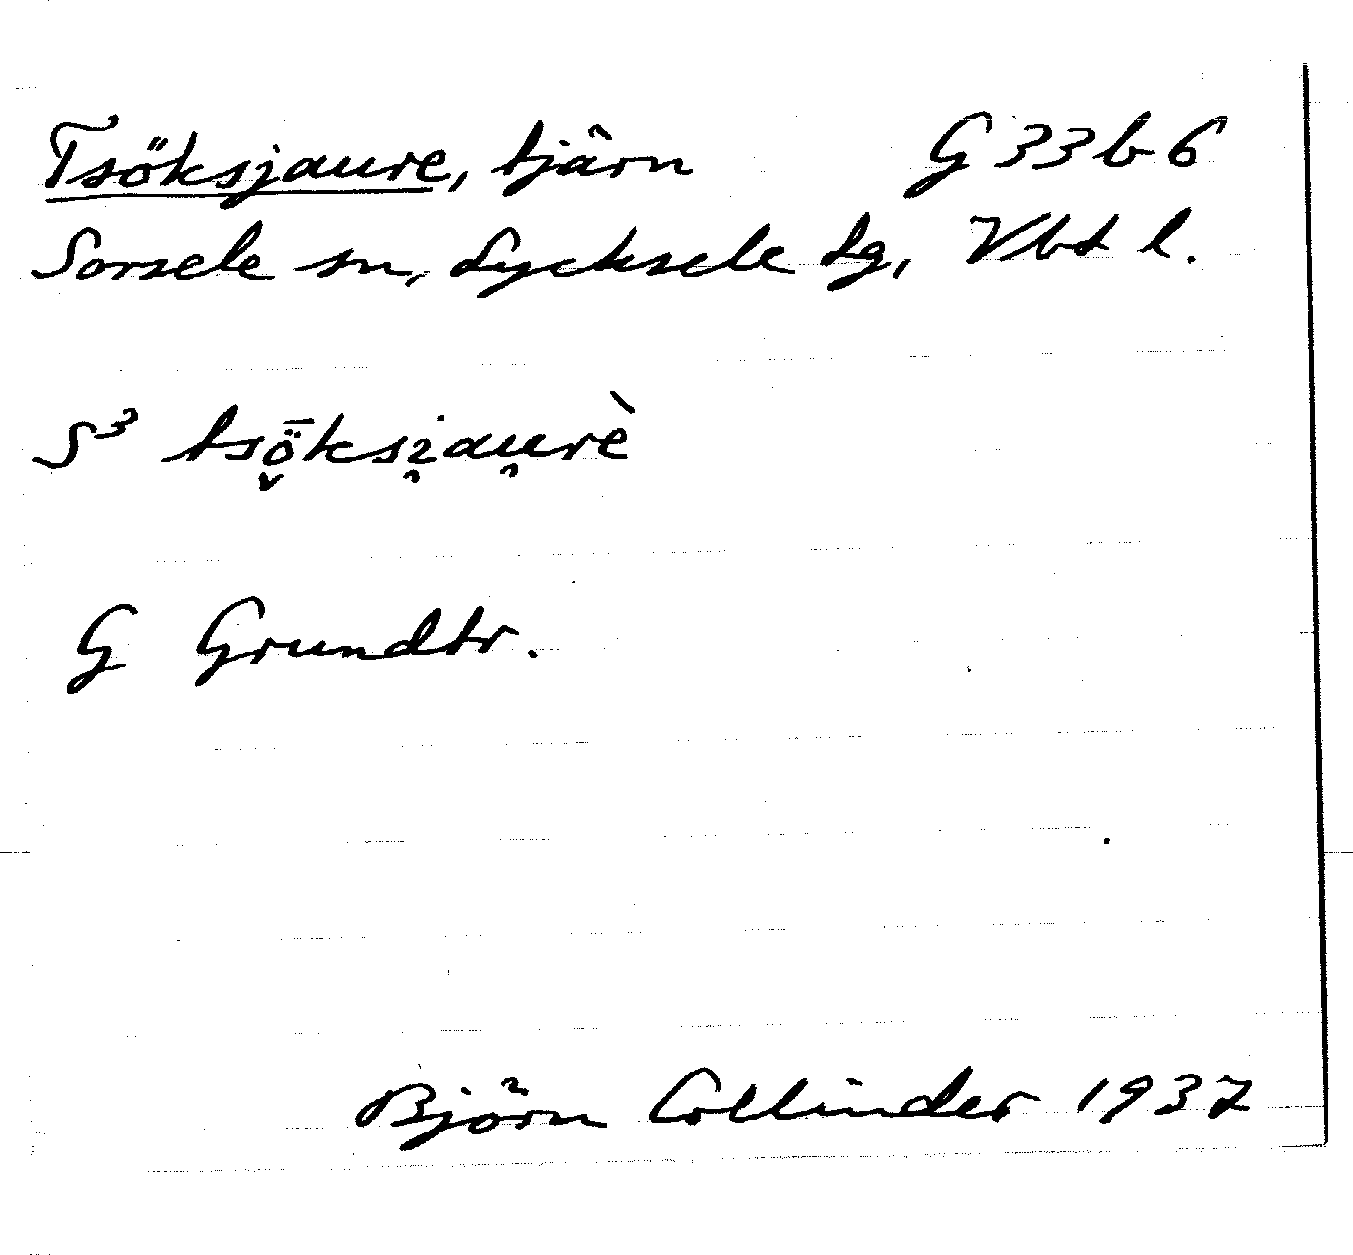 Tsöksjaure, tjärn G 33 b 6
Sorsele sn, Lycksele lg, Vbt l.
S³ tsȫ̬ksi̯au̯rè
G Grundtr.
Björn Collinder 1937